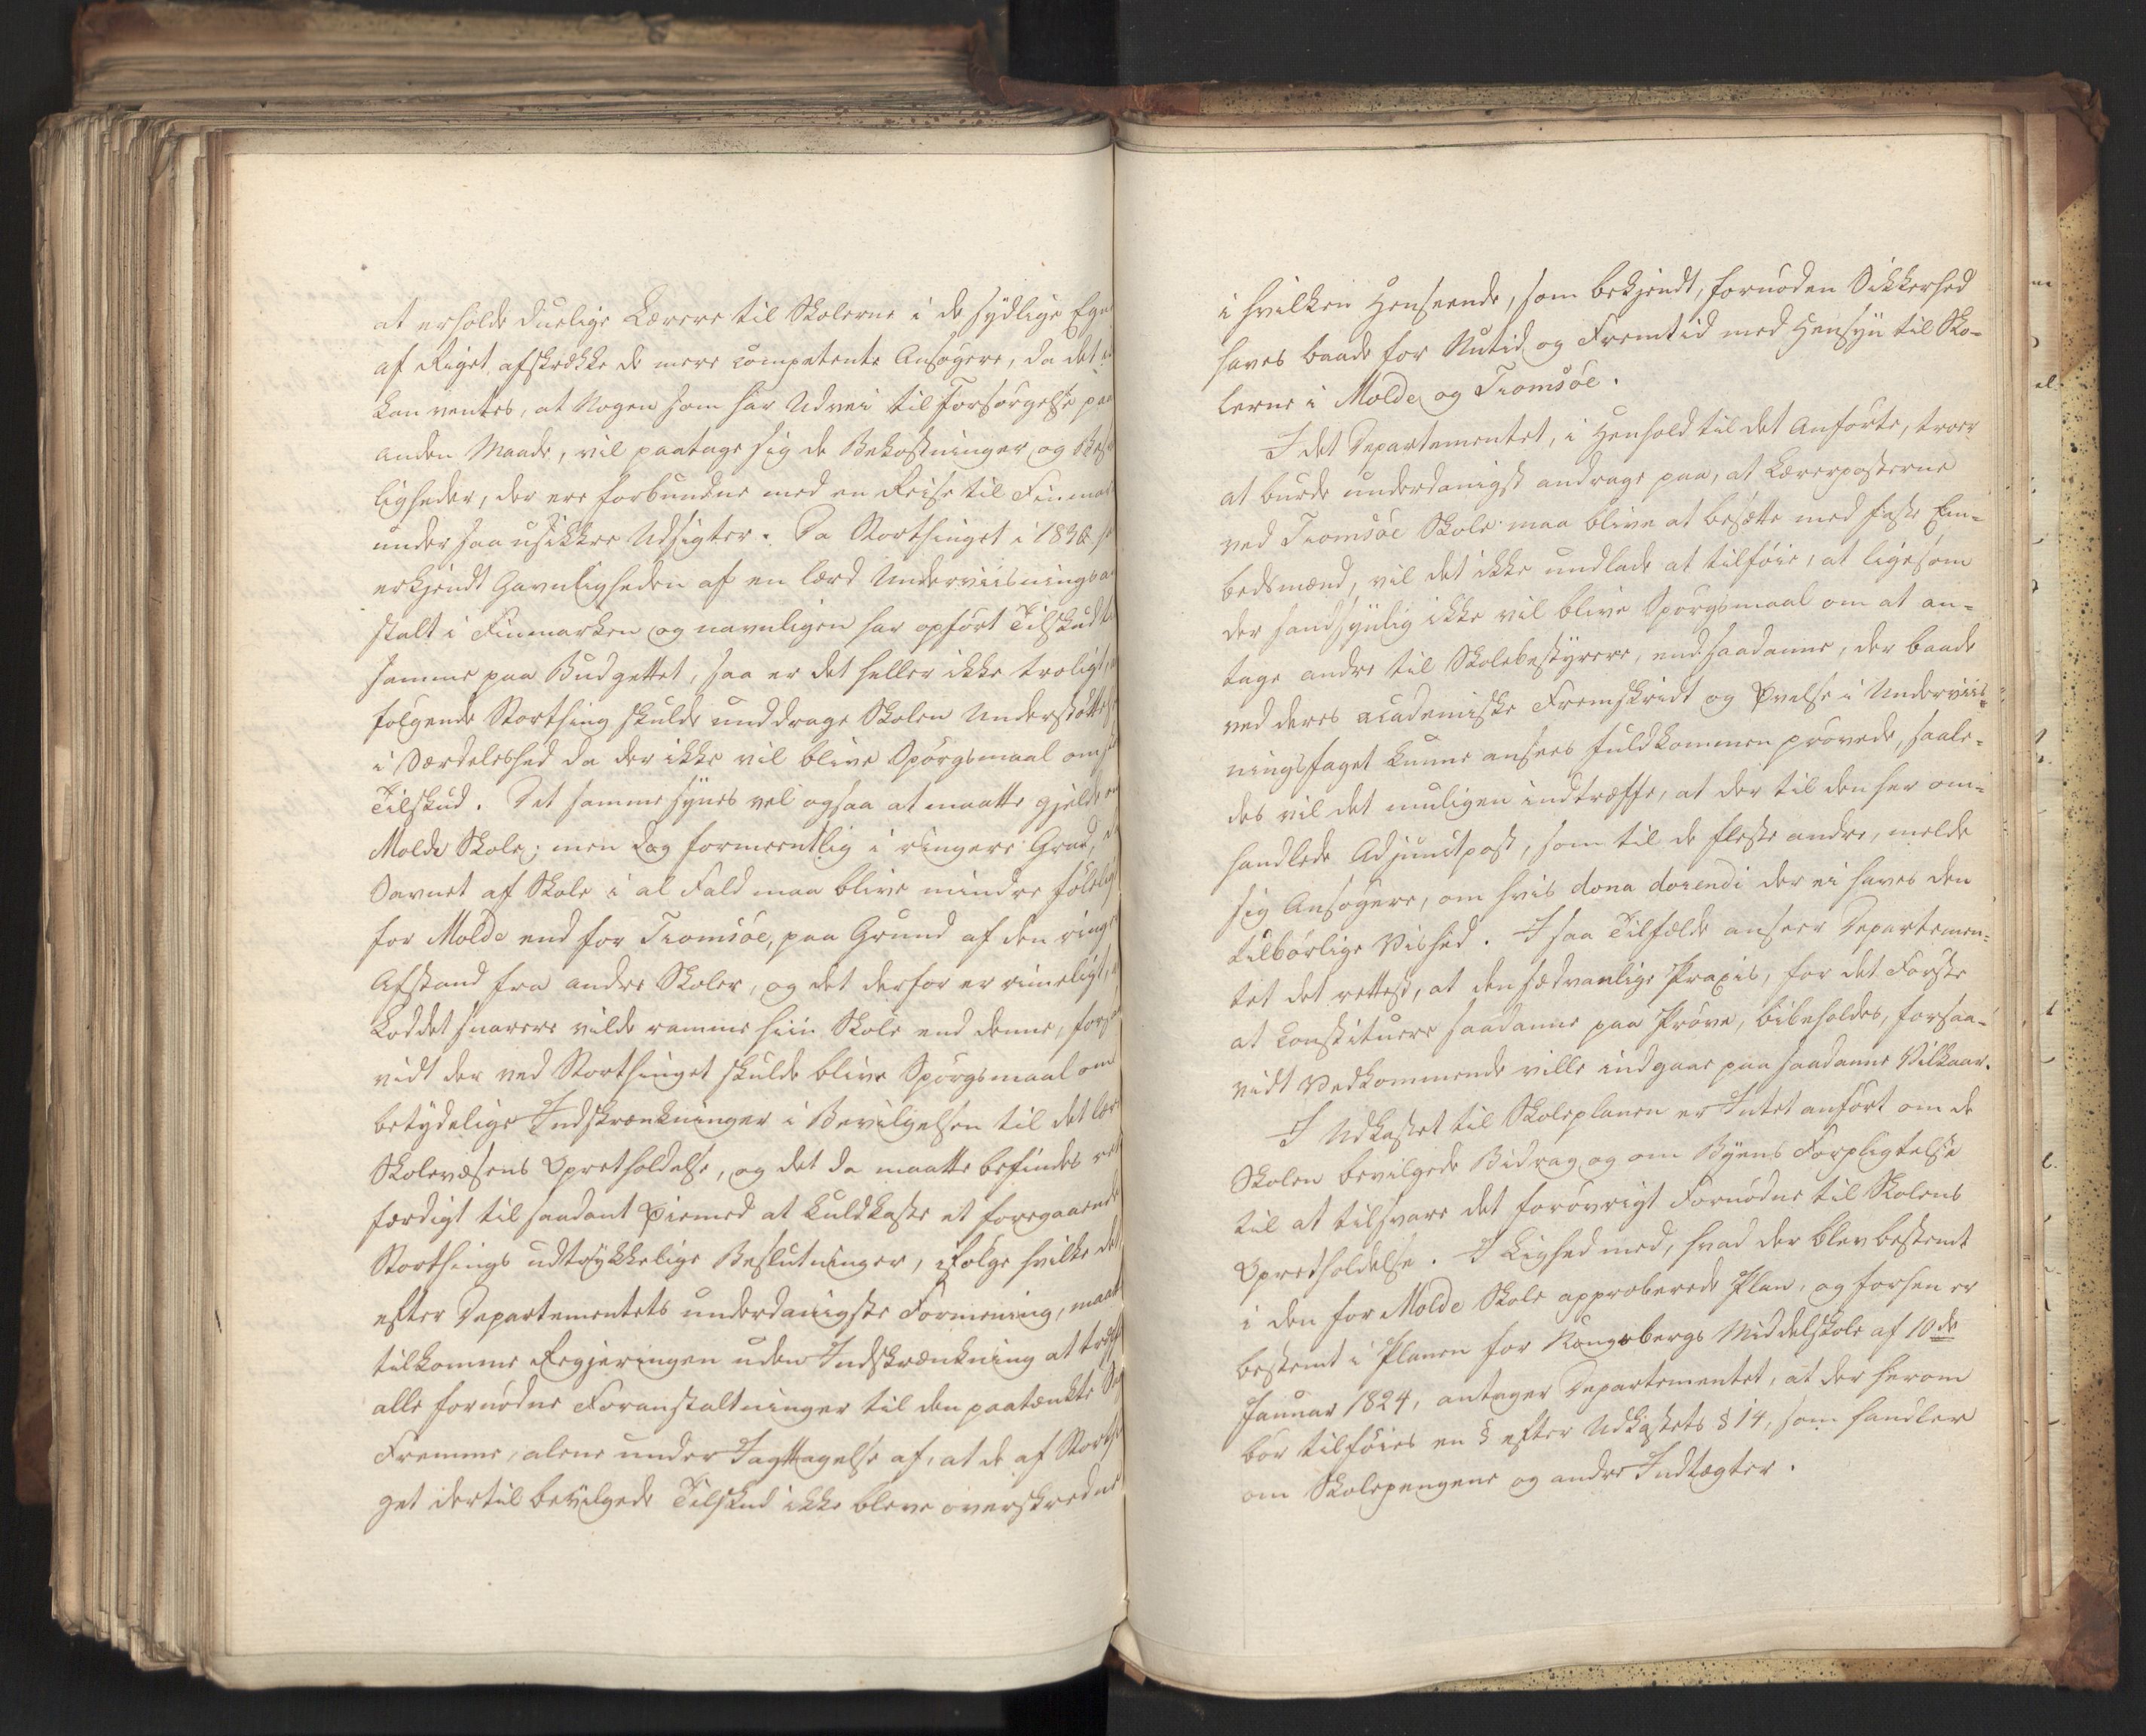 at erholde duelige Lærere til Skolerne i de sydlige Egne
af Riget, afskrække de mere competente Ansøgere, da det ei
kan ventes, at Nogen som har Udvei til Forsørgelse paa
anden Maade, vil paatage sig de Bekostninger og
ligheder, der ere forbundne med en Reise til Finmar
under saa usikkre Udsigter. Da Storthinget i 1836
erkjendt Gavnligheden af en lærd Underviisningsan
stalt i Finmarken og navnligen har opført Tilskud
samme paa Budgettet, saa er det heller ikke troligt,
følgende Storthing skulde unddrage Skolen Understøttelse
i Særdeleshed da der ikke vil blive Spørgsmaal om
Tilskud. Det samme synes vel ogsaa at maatte gjelde
Molde Skole; men dog formeentlig i ringere Grad,
Savnet af Skole i al Fald maa blive mindre føleligt
for Molde end for Tromsöe, paa Grund af den ringe
Afstand fra andre Skoler, og det derfor er rimeligt,
Loddet snarere vilde ramme hiin Skole end denne, forsaa
vidt der ved Storthinget skulde blive Spørgsmaal om
betydelige Indskrænkninger i Bevilgelsen til det lær
Skolevæsens Opretholdelse, og det da maatte befindes ret
færdigt til saadant Øiemed at kuldkaste et foregaaende
Storthings udtrykkelige Beslutninger, ifølge hvilke det
efter Departementets underdanigste Formening, maatte
tilkomme Regjeringen uden Indskrænkning at træffe
alle fornødne Foranstaltninger til den paatænkte Sags
Fremme, alene under Iagttagelse af, at de af Storthin
get dertil bevilgede Tilskud ikke bleve overskredne
i hvilken Henseende, som bekjendt, fornøden Sikkerhed
haves baade for Nutid og Fremtid med Hensyn til Sko-
lerne i Molde og Tromsöe.
I det Departementet, i Henhold til det Anførte, troer
at burde underdanigst andrage paa, at Lærerposterne
ved Tromsöe Skole maa blive at besætte med faste Em-
bedsmænd, vil det ikke undlade at tilføie, at ligesom
der sandsynlig ikke vil blive Spørgsmaal om at an-
tage andre til Skolebestyrere, end saadanne, der baade
ved deres academiske Fremskridt og Øvelse i Underviis-
ningsfaget kunne ansees fuldkommen prøvede, saale-
des vil det muligen indtræffe, at der til den her om-
handlede Adjunctpost, som til de fleste andre, melde
sig Ansøgere, om hvis dona docendi der ei haves den
tilbørlige Vished. I saa Tilfælde anseer Departemen-
tet det rettest, at den sædvanlige Praxis, for det Første
at constituere saadanne paa Prøve, bibeholdes, forsaa-
vidt Vedkommende ville indgaae paa saadanne Vilkaar.
I Udkastet til Skoleplanen er Intet anført om de
Skolen bevilgede Bidrag og om Byens Forpligtelse
til at tilsvare det forøvrigt Fornødne til Skolens
Opretholdelse. I Lighed med, hvad der blev bestemt
i den for Molde Skole approberede Plan, og forhen er
bestemt i Planen for Kongsbergs Middelskole af 10de
Januar 1824, antager Departementet, at der herom
bør tilføies en § efter Udkastets § 14, som handler
om Skolepengene og andre Indtægter.